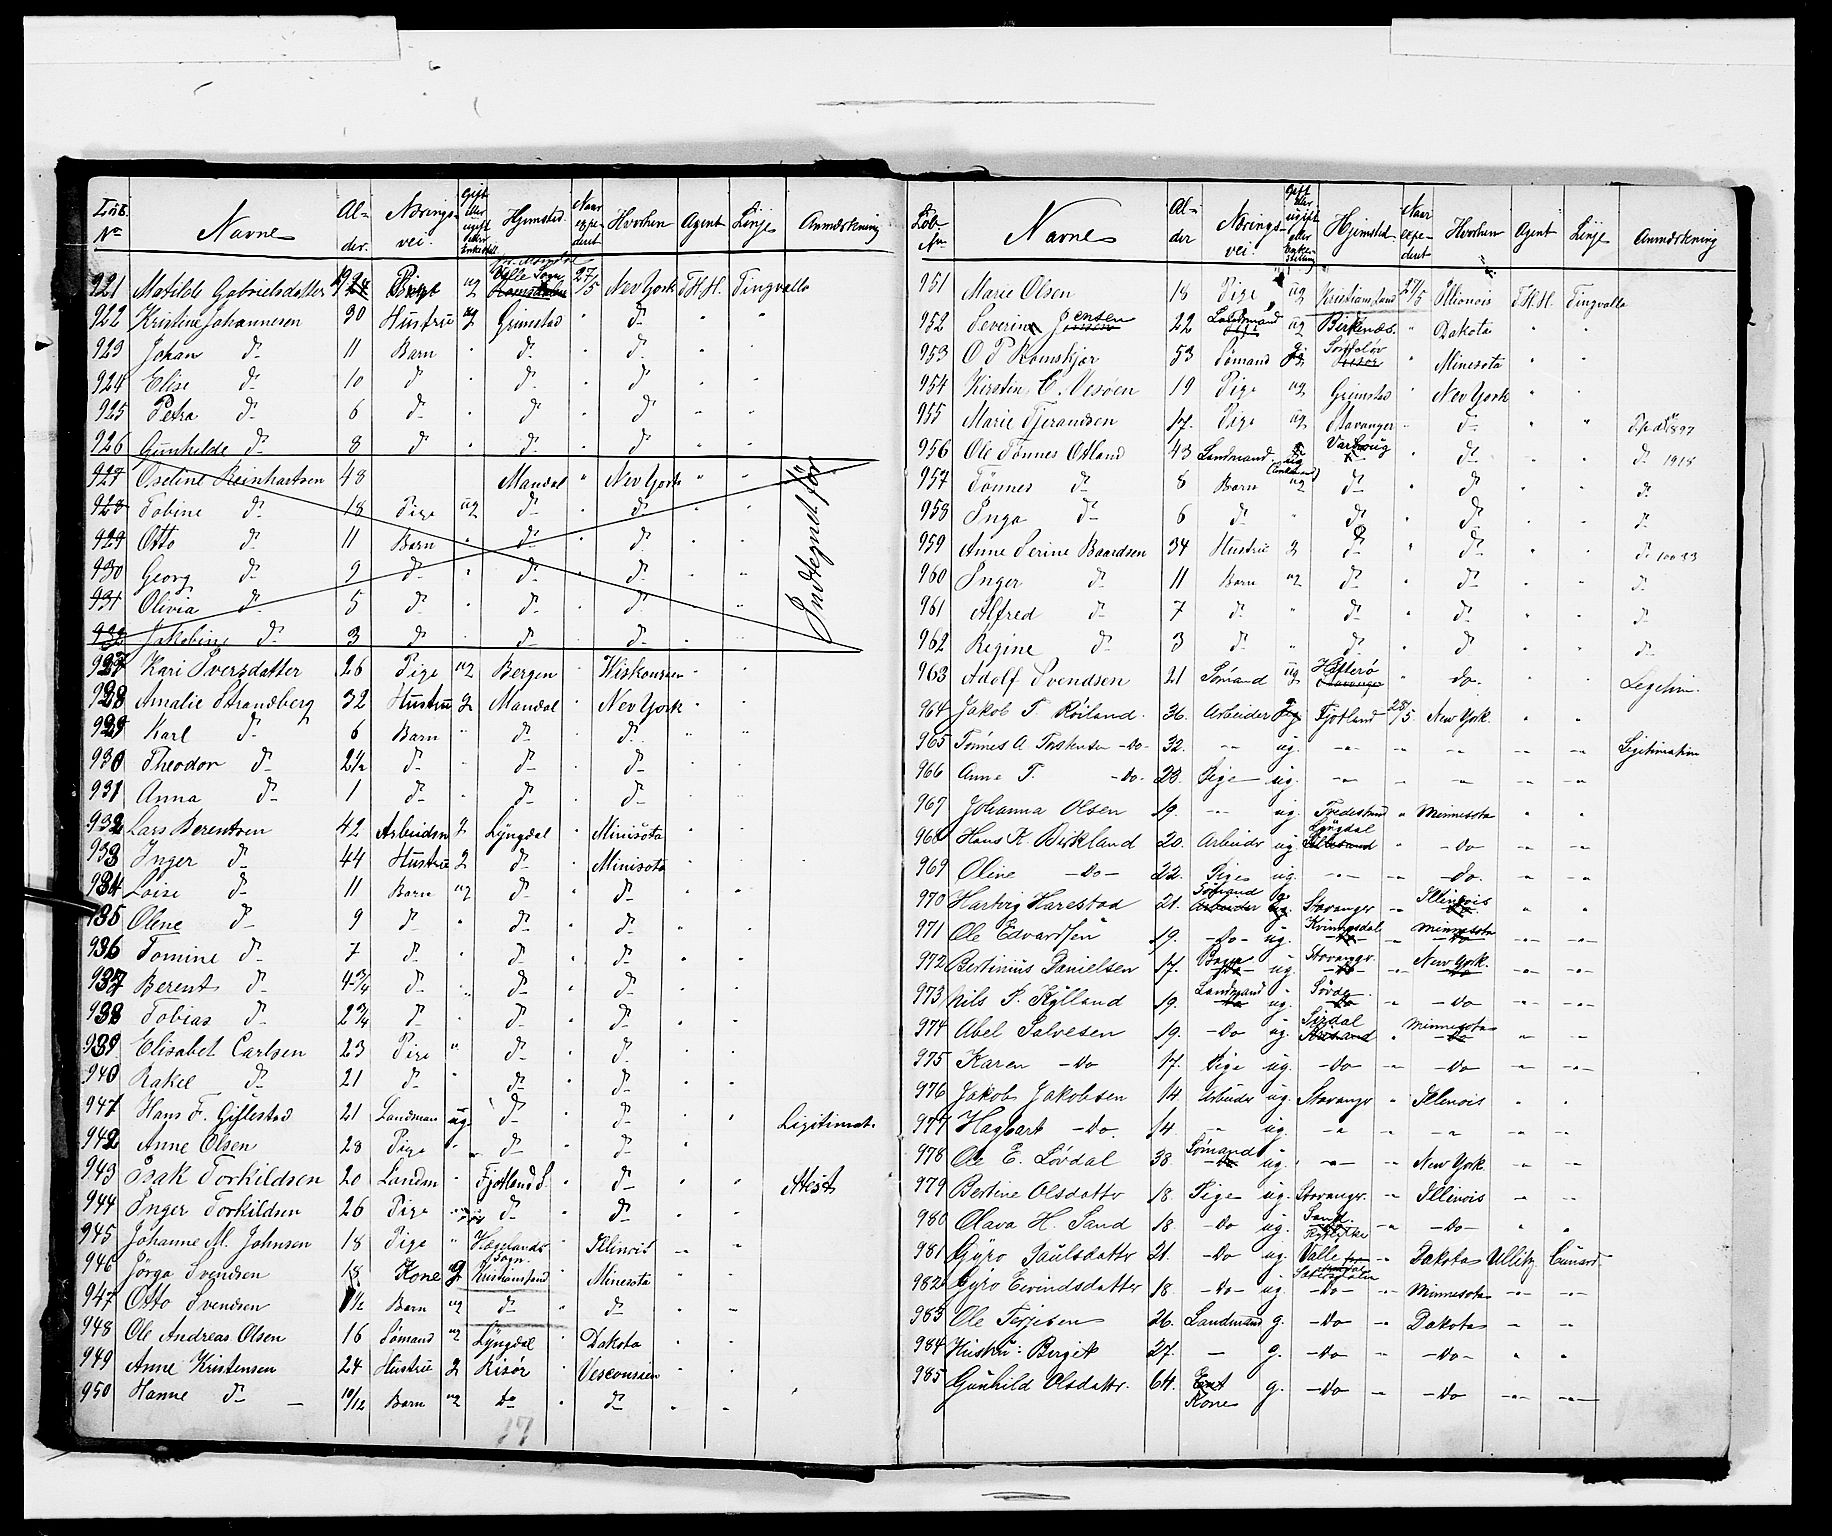 Løb. No Navne Alder. Nærings-vei. Gift eller ugift eller Enkestill. Hjemsted. Naar expedent Hvorhen Agent Linje Anmærkning
921 Matilde Gabrielsdatter 19 Pige ug Valle Sogn 27/5 New York T.H.H. Tingvalla
922 Kristine Johannesen 30 Hustru g Grimstad " do "
923 Johan do 11 Barn " do " do
924 Elise do 10 do " do " do
925 Petra do 6 do " do " do
926 Gunhilde do 8 do " do " do
927 Oseline Reinhartsen 48 Mandal " New York "
928 Tobine do 18 Pige ug do " do
929 Otto do 11 Barn " do " do
930 Georg do 9 do " do " do
931 Olivia do 5 do " do " do
932 Jakobine do 3 do " do " do
Indtegnet før
927 Kari Iversdatter 26 Pige ug Bergen " Wiskonsin "
928 Amalie Strandberg 32 Hustru g Mandal " New York "
929 Karl do 6 Barn " do " do
930 Theodor do 2½ do " do " do
931 Anna do 1 do " do " do
932 Lars Berentsen 42 Arbeider g Lyngdal " Minisota "
933 Inger do 44 Hustru g do " Minisota
934 Loise do 11 Barn ug do " do
935 Olene do 9 do " do " do
936 Tomine do 7 do " do " do
937 Berent do 4¾ do " do " do
938 Tobias do 2¾ do " do " do
939 Elisabet Carlsen 23 Pige " do " do
940 Rakel do 21 do " do " do
941 Hans F. Gillestad 21 Landman ug. do " do " Ligitimat.
942 Anne Olsen 28 Pige " do do
943 Isak Torkildsen 20 Landm " Fjotland S. " do " Atest
944 Inger Torkildsen 26 Pige do " do
945 Johanne M. Johnsen 18 Pige " Hægelands Sogn Illinois
946 Jørga Svendsen 18 Kone g Kristiansand " Minesota
947 Otto Svendsen 1½ Barn ug do " do
948 Ole Andreas Olsen 16 Sømand ug Lyngdal " Dakota
949 Anne Kristensen 24 Hustru g Risør " Vesconsien
950 Hanne do 10/12 Barn ug do " do
17
Løb-Nr. Navne Alder Nærings-vei. Gift eller ugift eller Enkestilling Hjemsted. Naar expedent Hvorhen Agent Linje Anmærkning
951 Marie Olsen 18 Pige ug Kristiansand 27/5 Illionois T.H.H. Tingvalla
952 Severin Jensen 22 Landmand ug Birkenæs " Dakota
953 O P 53 Sømand " Minesota
954 Kirstin C. Vesøen 19 Pige ug Grimstad New York
955 Marie Tjerandsen 17. Pige ug Stavanger " do 1897
956 Ole Tønnes Ostland 43 Landmand ug (Enkemand) Varhoug " do do 1915
957 Tønnes do 8 Barn ug do " do do
958 Inga do 6 do " do " do do
959 Anne Serine Baardsen 34 Hustru g do " do do 10033
960 Inger do 11 Barn ug do " do do
961 Alfred do 7 do " do " do do
962 Regine do 3 do " do " do do
963 Adolf Svendsen 21 Sømand ug Hitterø " do. Legitim.
964 Jakob T. Røiland. 36. Arbeider Fjotland 28/5. New York. "
965 Tønnes A. Torkensen -do- 32. -"- ug. -"- Legitimation
966 Anna T. -do- 23. Pige ug. -"-
967 Johanna Olsen 19. -"- ug. Fredestrand " Minnesota "
968 Hans A. Birkland 20. Arbeider ug Lyngdal " -do "
969 Oline -do- 22. Pige ug. -"- -do. "
970 Hartvig Harestad 21. Sømand g. Stavanger " Illinois "
971 Ole Edvardsen 19. -do- ug. Kvinnesdal " Minnesota "
972 Bertinius Danielsen 17. ug. Stavangr. " New York. "
973 Nils P. Kylland 19. Landmand ug. " -do "
974 Abel Salvesen 19. -do ug. Sirdal " Minnesota "
975 Karen -do 17. Pige ug. -do " -do "
976 Jakob Jakobsen 14. Arbeider ug. Stavangr " Illinois "
977 Hagbart -do. 14. " ug. "
978 Ole E. Løvdal 38. Sømand ug. -"- New York "
979 Bertine Olsdattr 18. Pige ug. Stavangr. " Illinois "
980 Olava H. Sand 18. -do ug. Sand. " -do- "
981 Gyro Paulsdatter 21. -do ug. Valle Sætersdalen " Dakota Ullitz Cunard
982 Gyro Eivindsdatter 18. -do- ug. -do- Minnesota
983 Ole Terjesen 26. Landmand g. -do " Dakota "
984 Hustru: Birgit 27. - g. -do " -do- "
985 Gunhild Olsdattr. 64. Kone g. -do " -do "